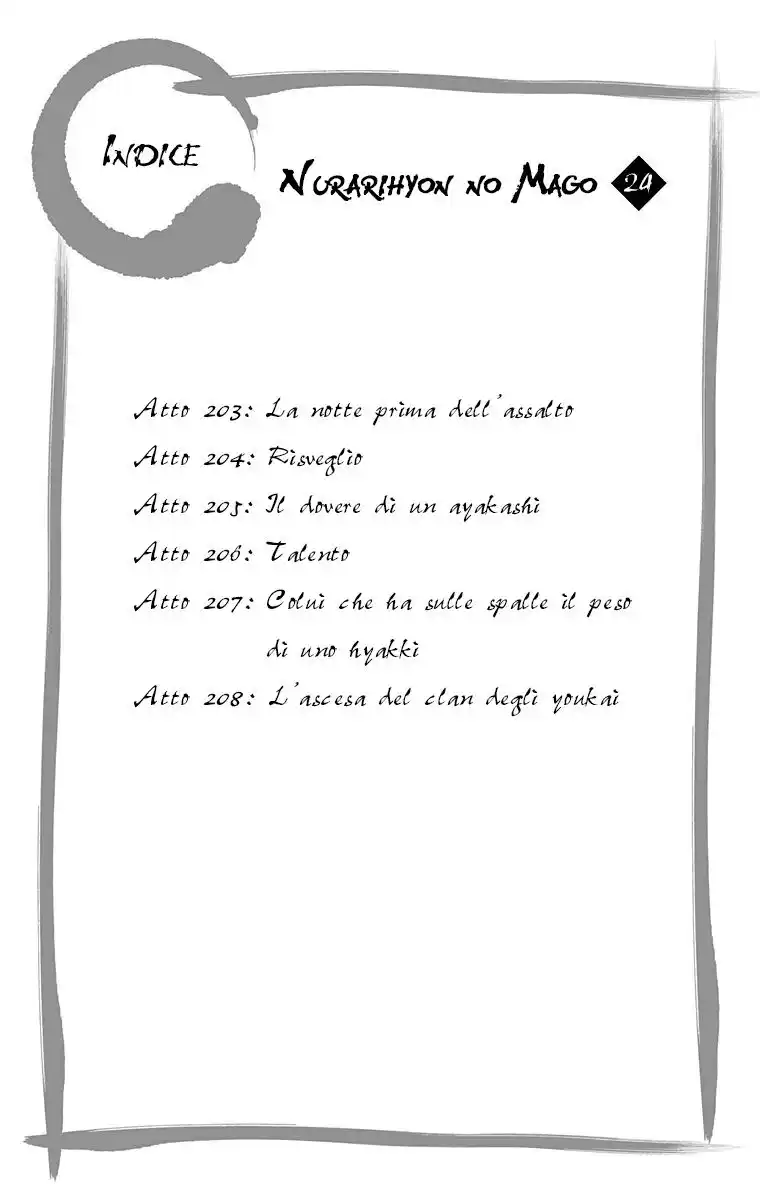 Indice
Nurarihyon no Mago 24
Atto 203: La notte prima dell'assalto
Atto 204: Risveglio
Atto 205: Il dovere di un ayakashi
Atto 206: Talento
Atto 207: Colui che ha sulle spalle il peso
di uno hyakki
Atto 208: L'ascesa del clan degli youkai